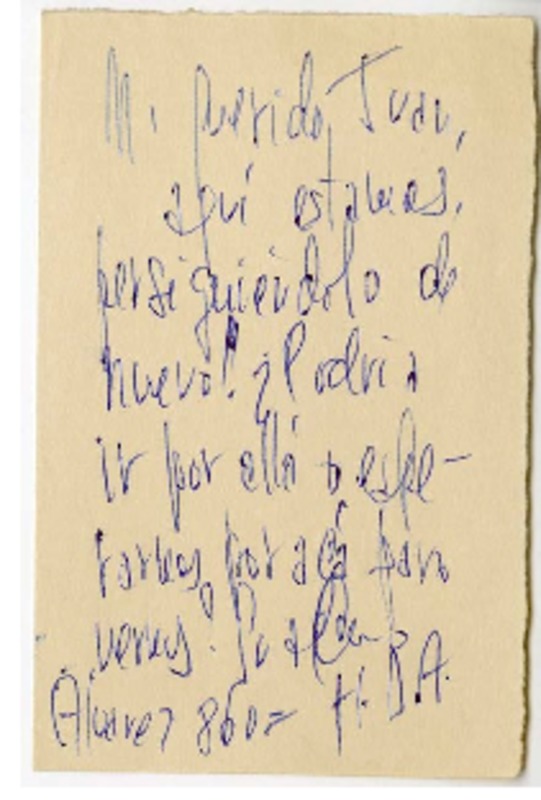 Mi querido Juan,
aquí estamos,
persiguiéndolo de
nuevo! ¿Podría
ir por allá o espe-
rarlas por acá para
vernos?
Alvarez 860= H.B.A.